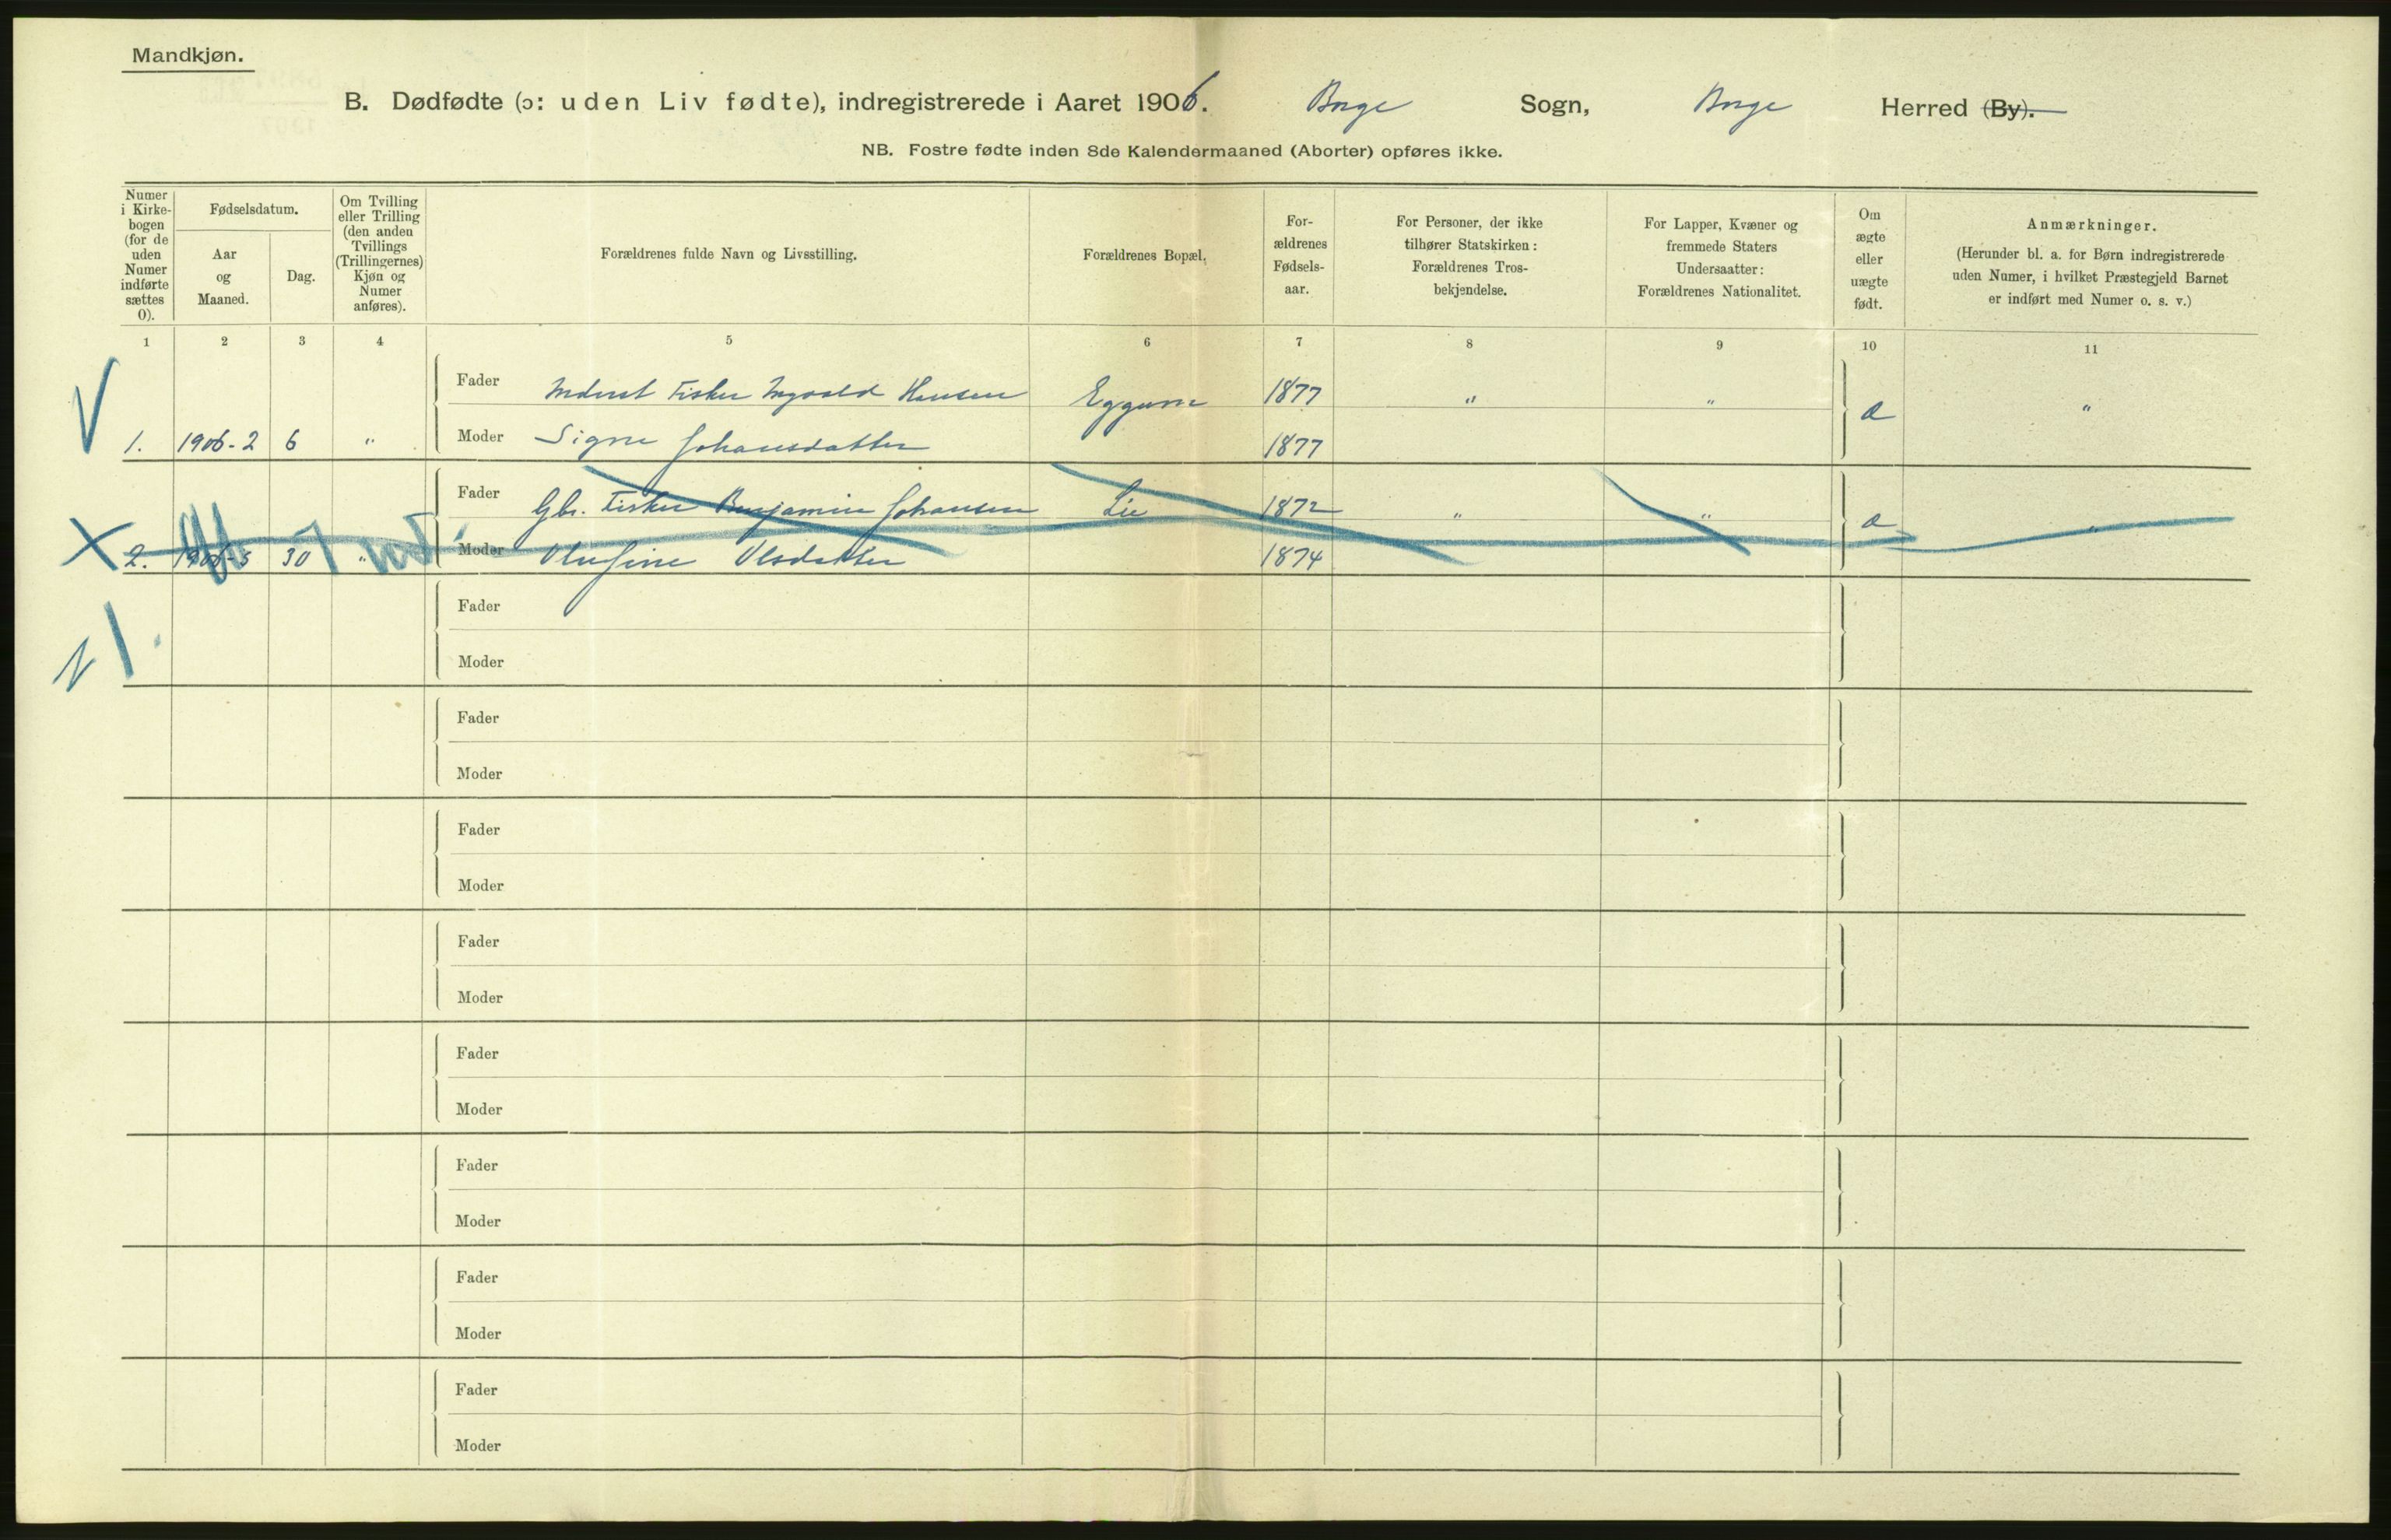 Mandkjøn.
B. Dødfødte (ɔ: uden Liv fødte), indregistrerede i Aaret 1906. Borge Sogn, Borge Herred (By).
NB. Fostre fødte inden 8de Kalendermaaned (Aborter) opføres ikke.
Numer i Kirke-bogen (for de uden Numer indførte sættes 0).
Fødselsdatum.
Aar og Maaned.
Dag.
Om Tvilling eller Trilling (den anden Tvillings (Trillingernes) Kjøn og Numer anføres).
Forældrenes fulde Navn og Livsstilling.
Forældrenes Bopæl.
For-ældrenes Fødsels-aar.
For Personer, der ikke tilhører Statskirken: Forældrenes Tros-bekjendelse.
For Lapper, Kvæner og fremmede Staters Undersaatter: Forældrenes Nationalitet.
Om ægte eller uægte født.
Anmærkninger.
(Herunder bl. a. for Børn indregistrerede uden Numer, i hvilket Præstegjeld Barnet er indført med Numer o. s. v.)
1 2 3 4 5 6 7 8 9 10 11
Fader Inderst Fisker Ingvald Hansen Eggum 1877 " " "
1. 1906-2 6 " Moder Signe Johansdatter 1877
Fader Gbr. Fisker Benjamin Johansen Lie 1872 " " "
2. 1906-5 30 " Moder Olufine Olsdatter 1874
Fader
Moder
N 1.
Fader
Moder
Fader
Moder
Fader
Moder
Fader
Moder
Fader
Moder
Fader
Moder
Fader
Moder